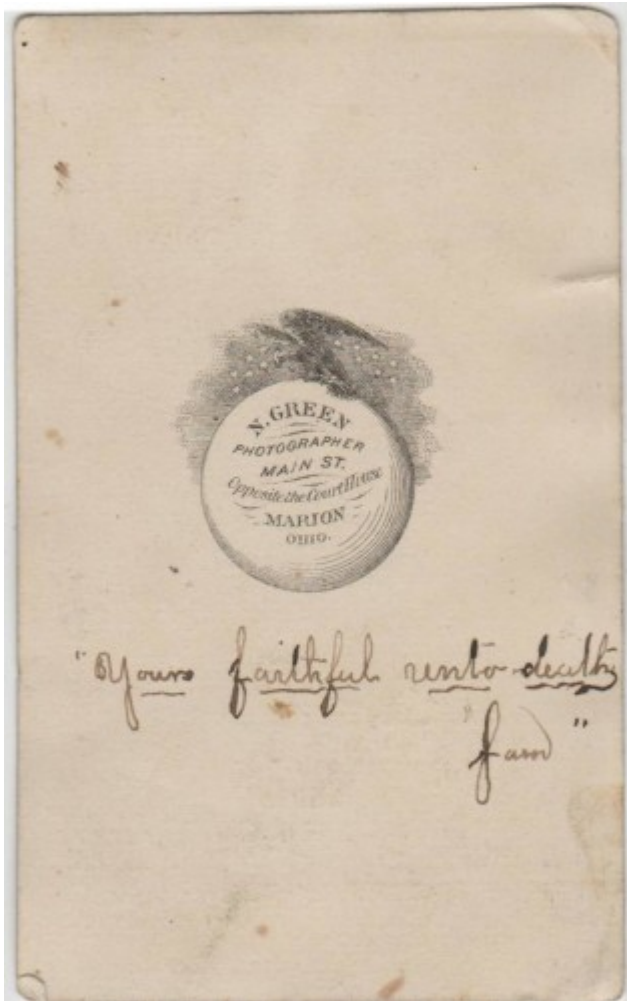 N. GREEN
PHOTOGRAPHER
MAIN ST.
Opposite the Court House
MARION
OHIO.
"Yours faithful unto death